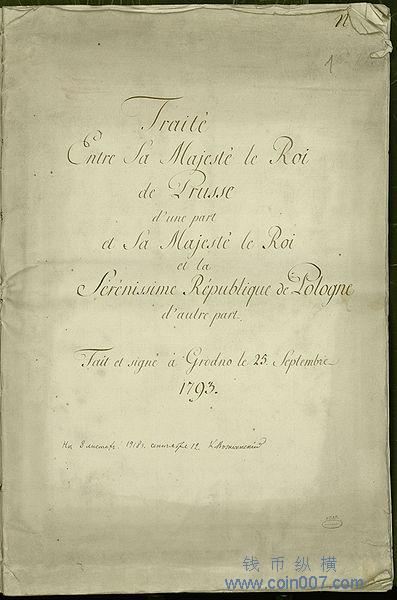 Traité
Entre Sa Majesté le Roi
de Prusse
d'une part
et Sa Majesté le Roi
et la
Sérénissime République de Pologne
d'autre part.
Fait et signé à Grodno le 25. Septembre
1793.
На 8 листахъ. 1918 г. сентября 12.
钱币纵横
www.coin007.com